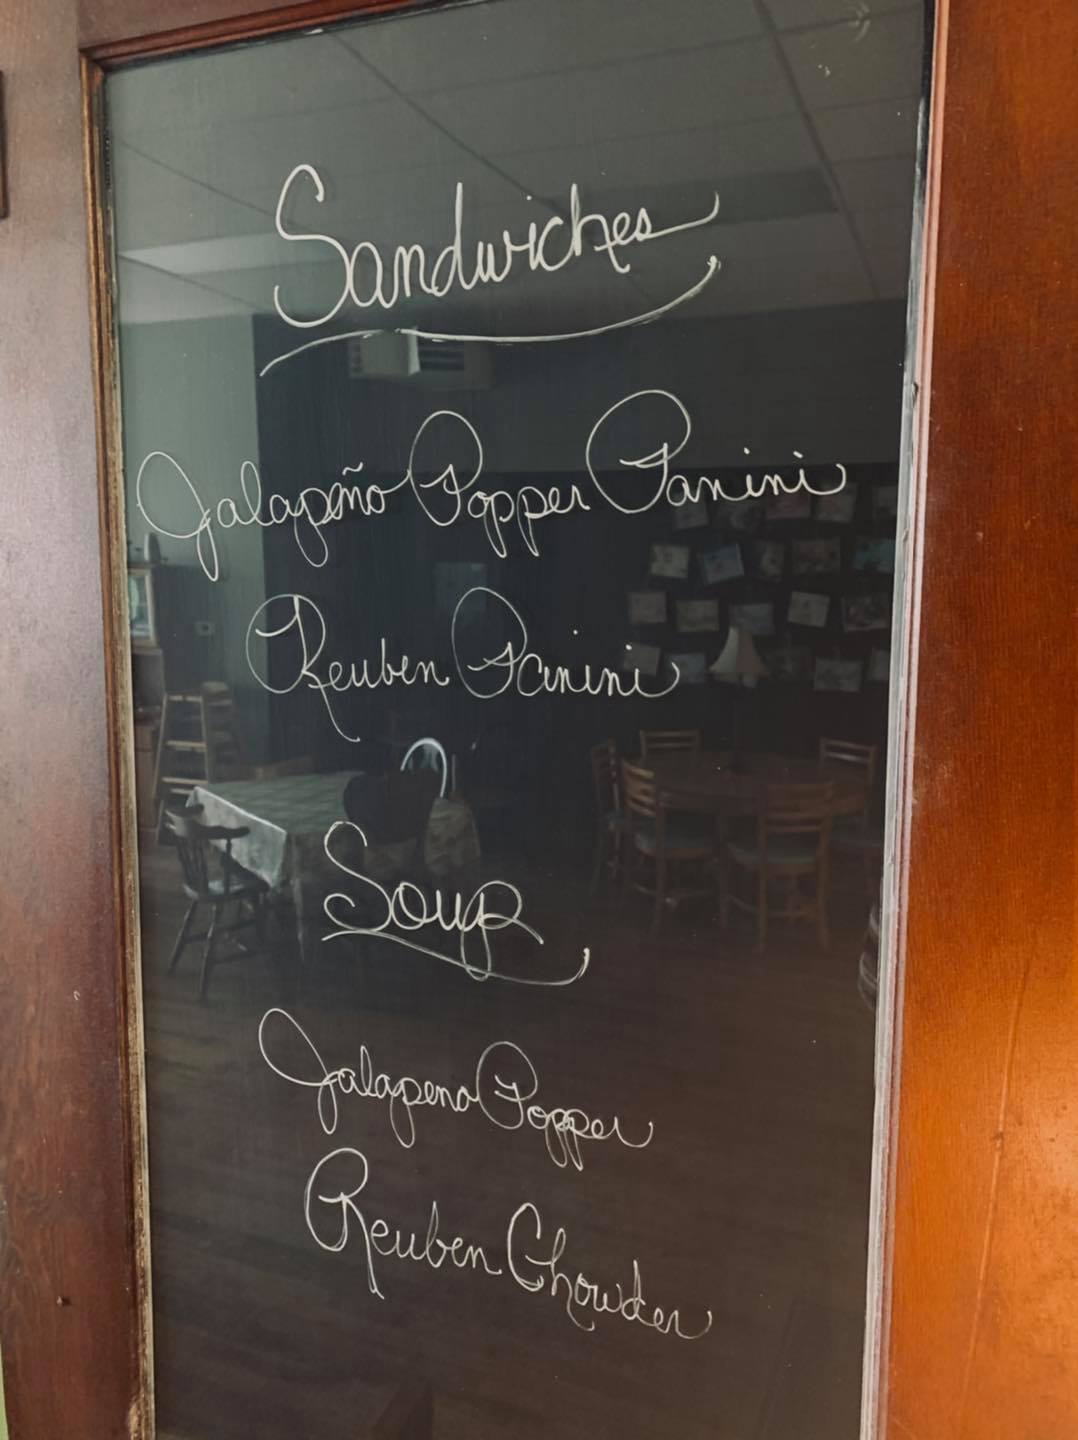 Sandwiches
Jalapeño Popper Panini
Reuben Panini
Soup
Jalapeno Popper
Reuben Chowder